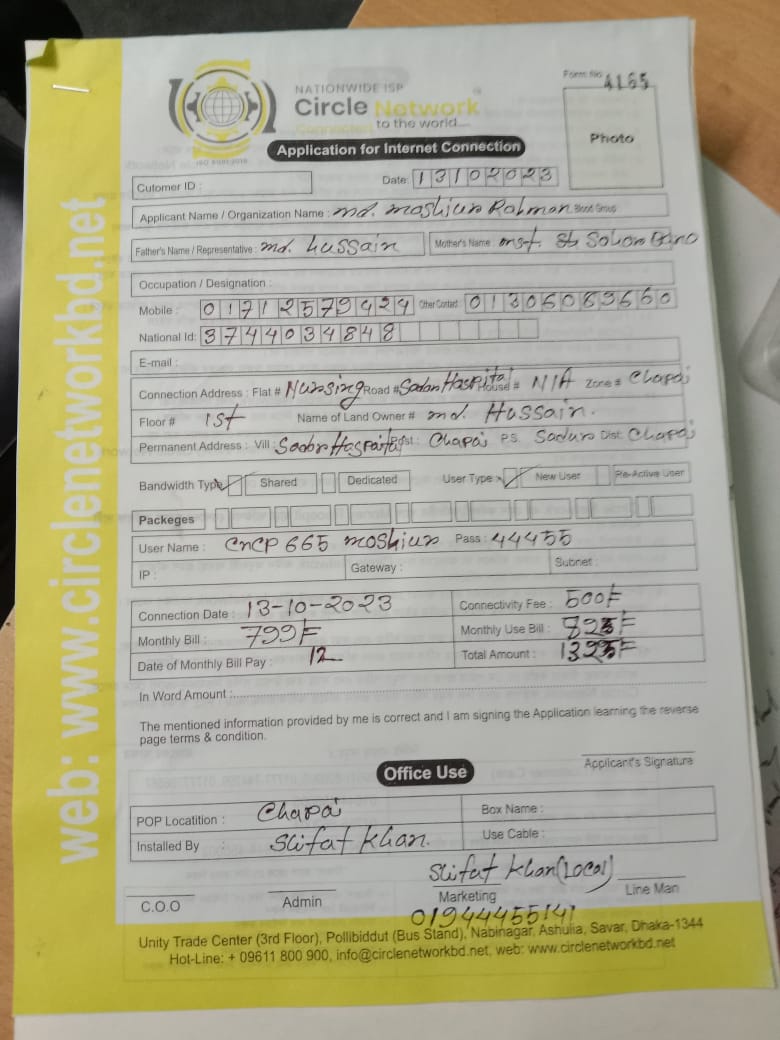 Form No: 4165
NATIONWIDE ISP
Circle Network
Connecting to the world....
ISO 9001:2015
Photo
Application for Internet Connection
Cutomer ID : Date: 13102023
Applicant Name / Organization Name : md. moshiur Rahman Blood Group
Father's Name / Representative : md. hussain Mother's Name : mst.
Occupation / Designation :
Mobile : 01712579424 Other Contact : 01306083660
National Id: 3744034848
E-mail :
Connection Address : Flat # Nursing Road # Sadar Hospital House # N/A Zone # Chapai
Floor # 1st Name of Land Owner # md. Hussain.
Permanent Address : Vill : Sadar Hospital Post : Chapai P.S. Sadur Dist: Chapai
Bandwidth Type Shared Dedicated User Type New User Re-Active User
Packeges
User Name : CNCP 665 moshiur Pass : 44455
IP : Gateway : Subnet :
Connection Date : 13-10-2023 Connectivity Fee : 500/=
Monthly Bill : 799/= Monthly Use Bill : /=
Date of Monthly Bill Pay : 12 Total Amount : /=
In Word Amount :
The mentioned information provided by me is correct and I am signing the Application learning the reverse
page terms & condition.
Applicant's Signature
Office Use
POP Locatition : Chapai Box Name :
Installed By : Sifat Khan. Use Cable :
Sifat Khan (Local)
C.O.O Admin Marketing Line Man
01944455141
Unity Trade Center (3rd Floor), Pollibiddut (Bus Stand), Nabinagar, Ashulia, Savar, Dhaka-1344
Hot-Line: + 09611 800 900, info@circlenetworkbd.net, web: www.circlenetworkbd.net
web: www.circlenetworkbd.net